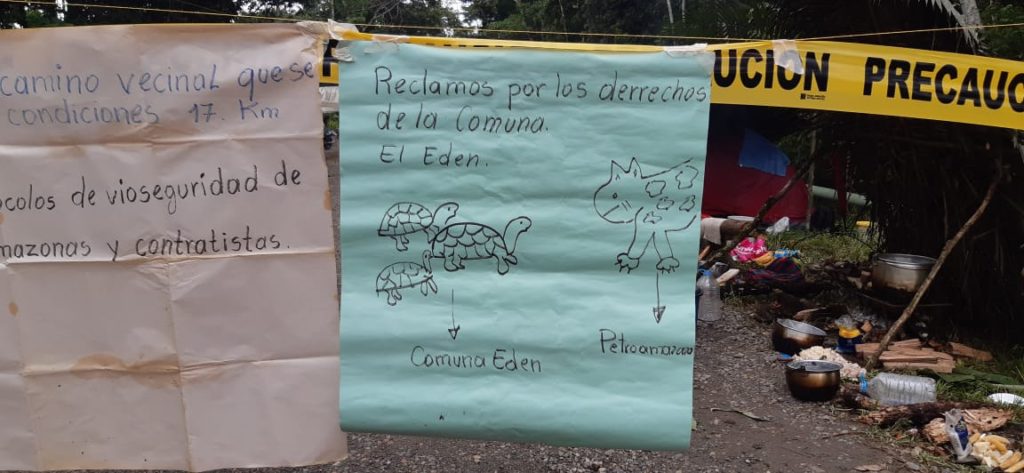 camino vecinal que se
condiciones 17. Km
colos de vioseguridad de
mazonas y contratistas.
Reclamos por los derrechos
de la Comuna.
El Eden.
Comuna Eden
Petroamazonas
UCION PRECAUC